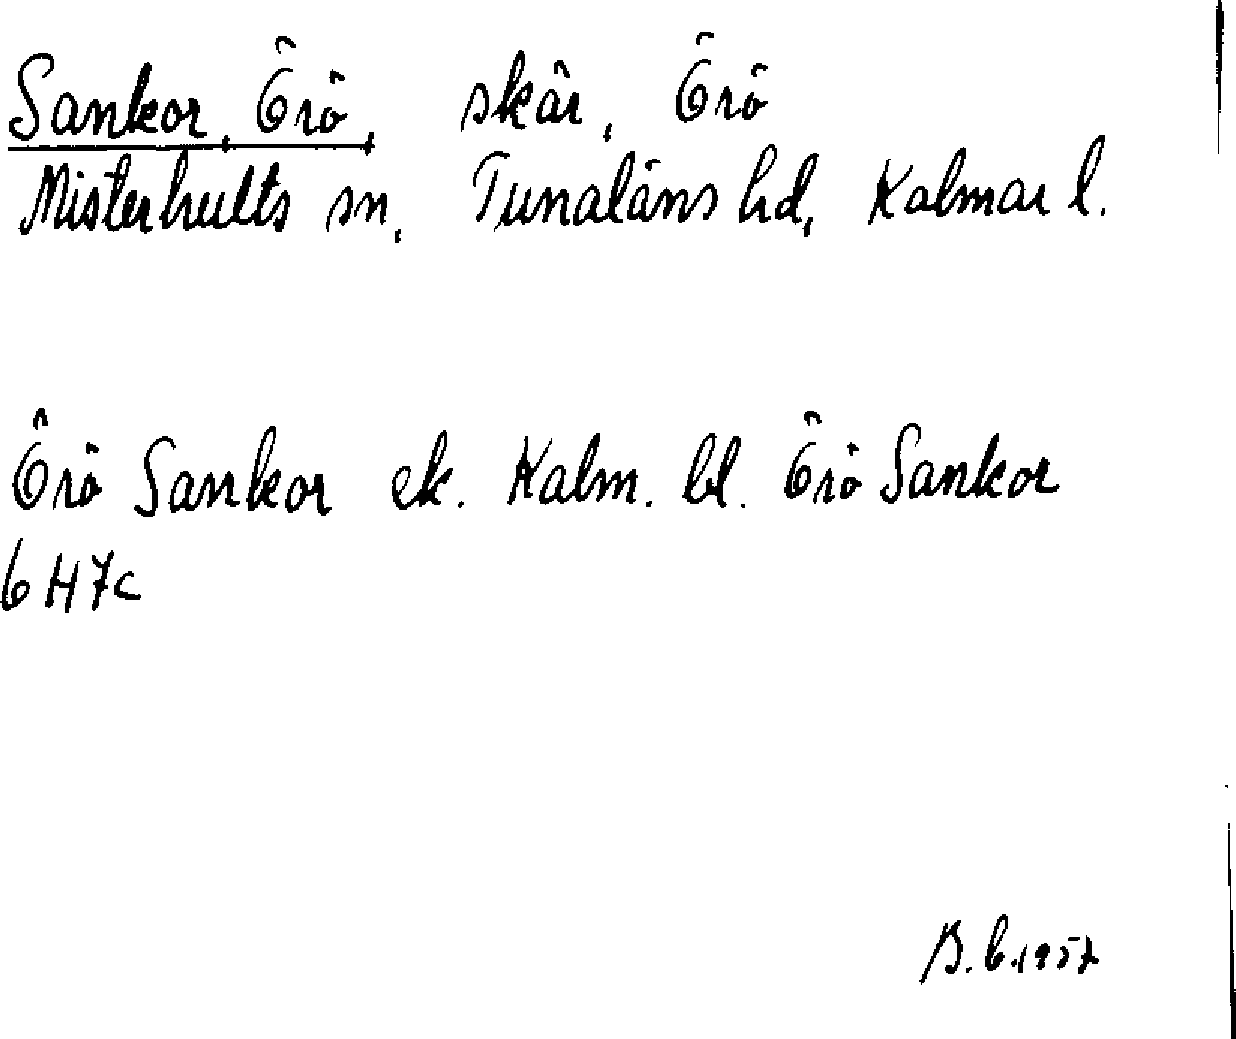 Sankor, Örö, skär, Örö
Misterhults sn, Tunaläns hd, Kalmar l.
Örö Sankor ek. Kalm. bl. Örö Sankor
6H7c
B.b.1957